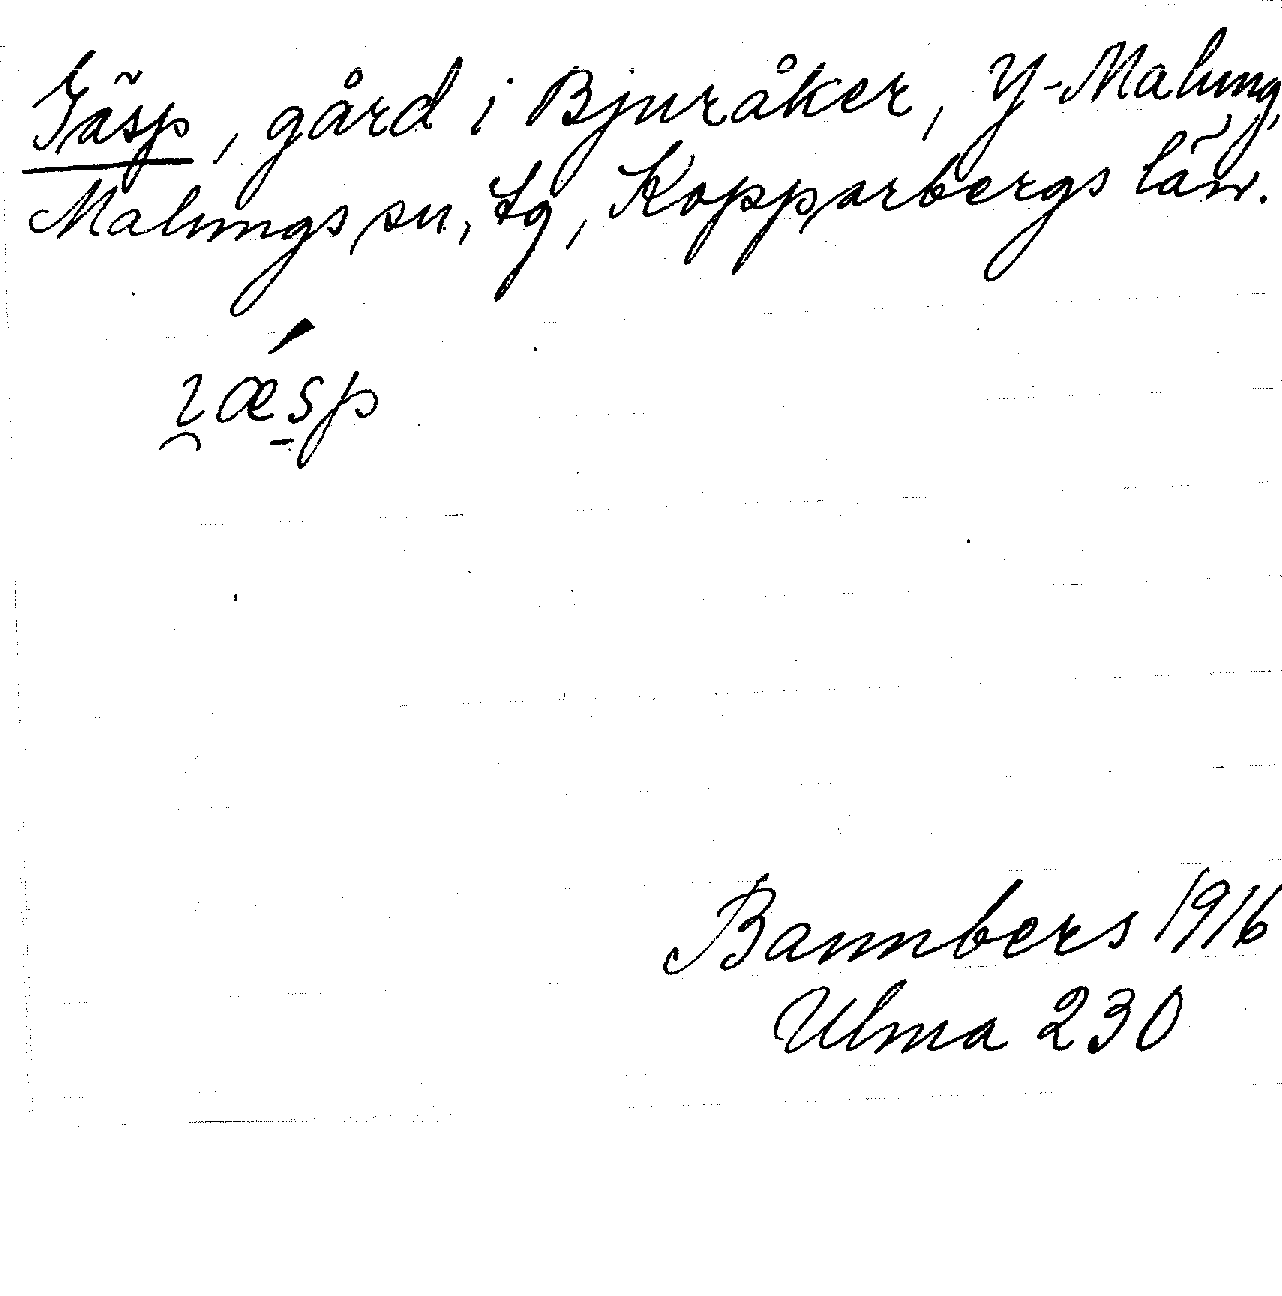 Jäsp, gård i Bjuråker, Y-Malung,
Malungs sn, tg, Kopparbergs län.
Bannbers 1916
Ulma 230